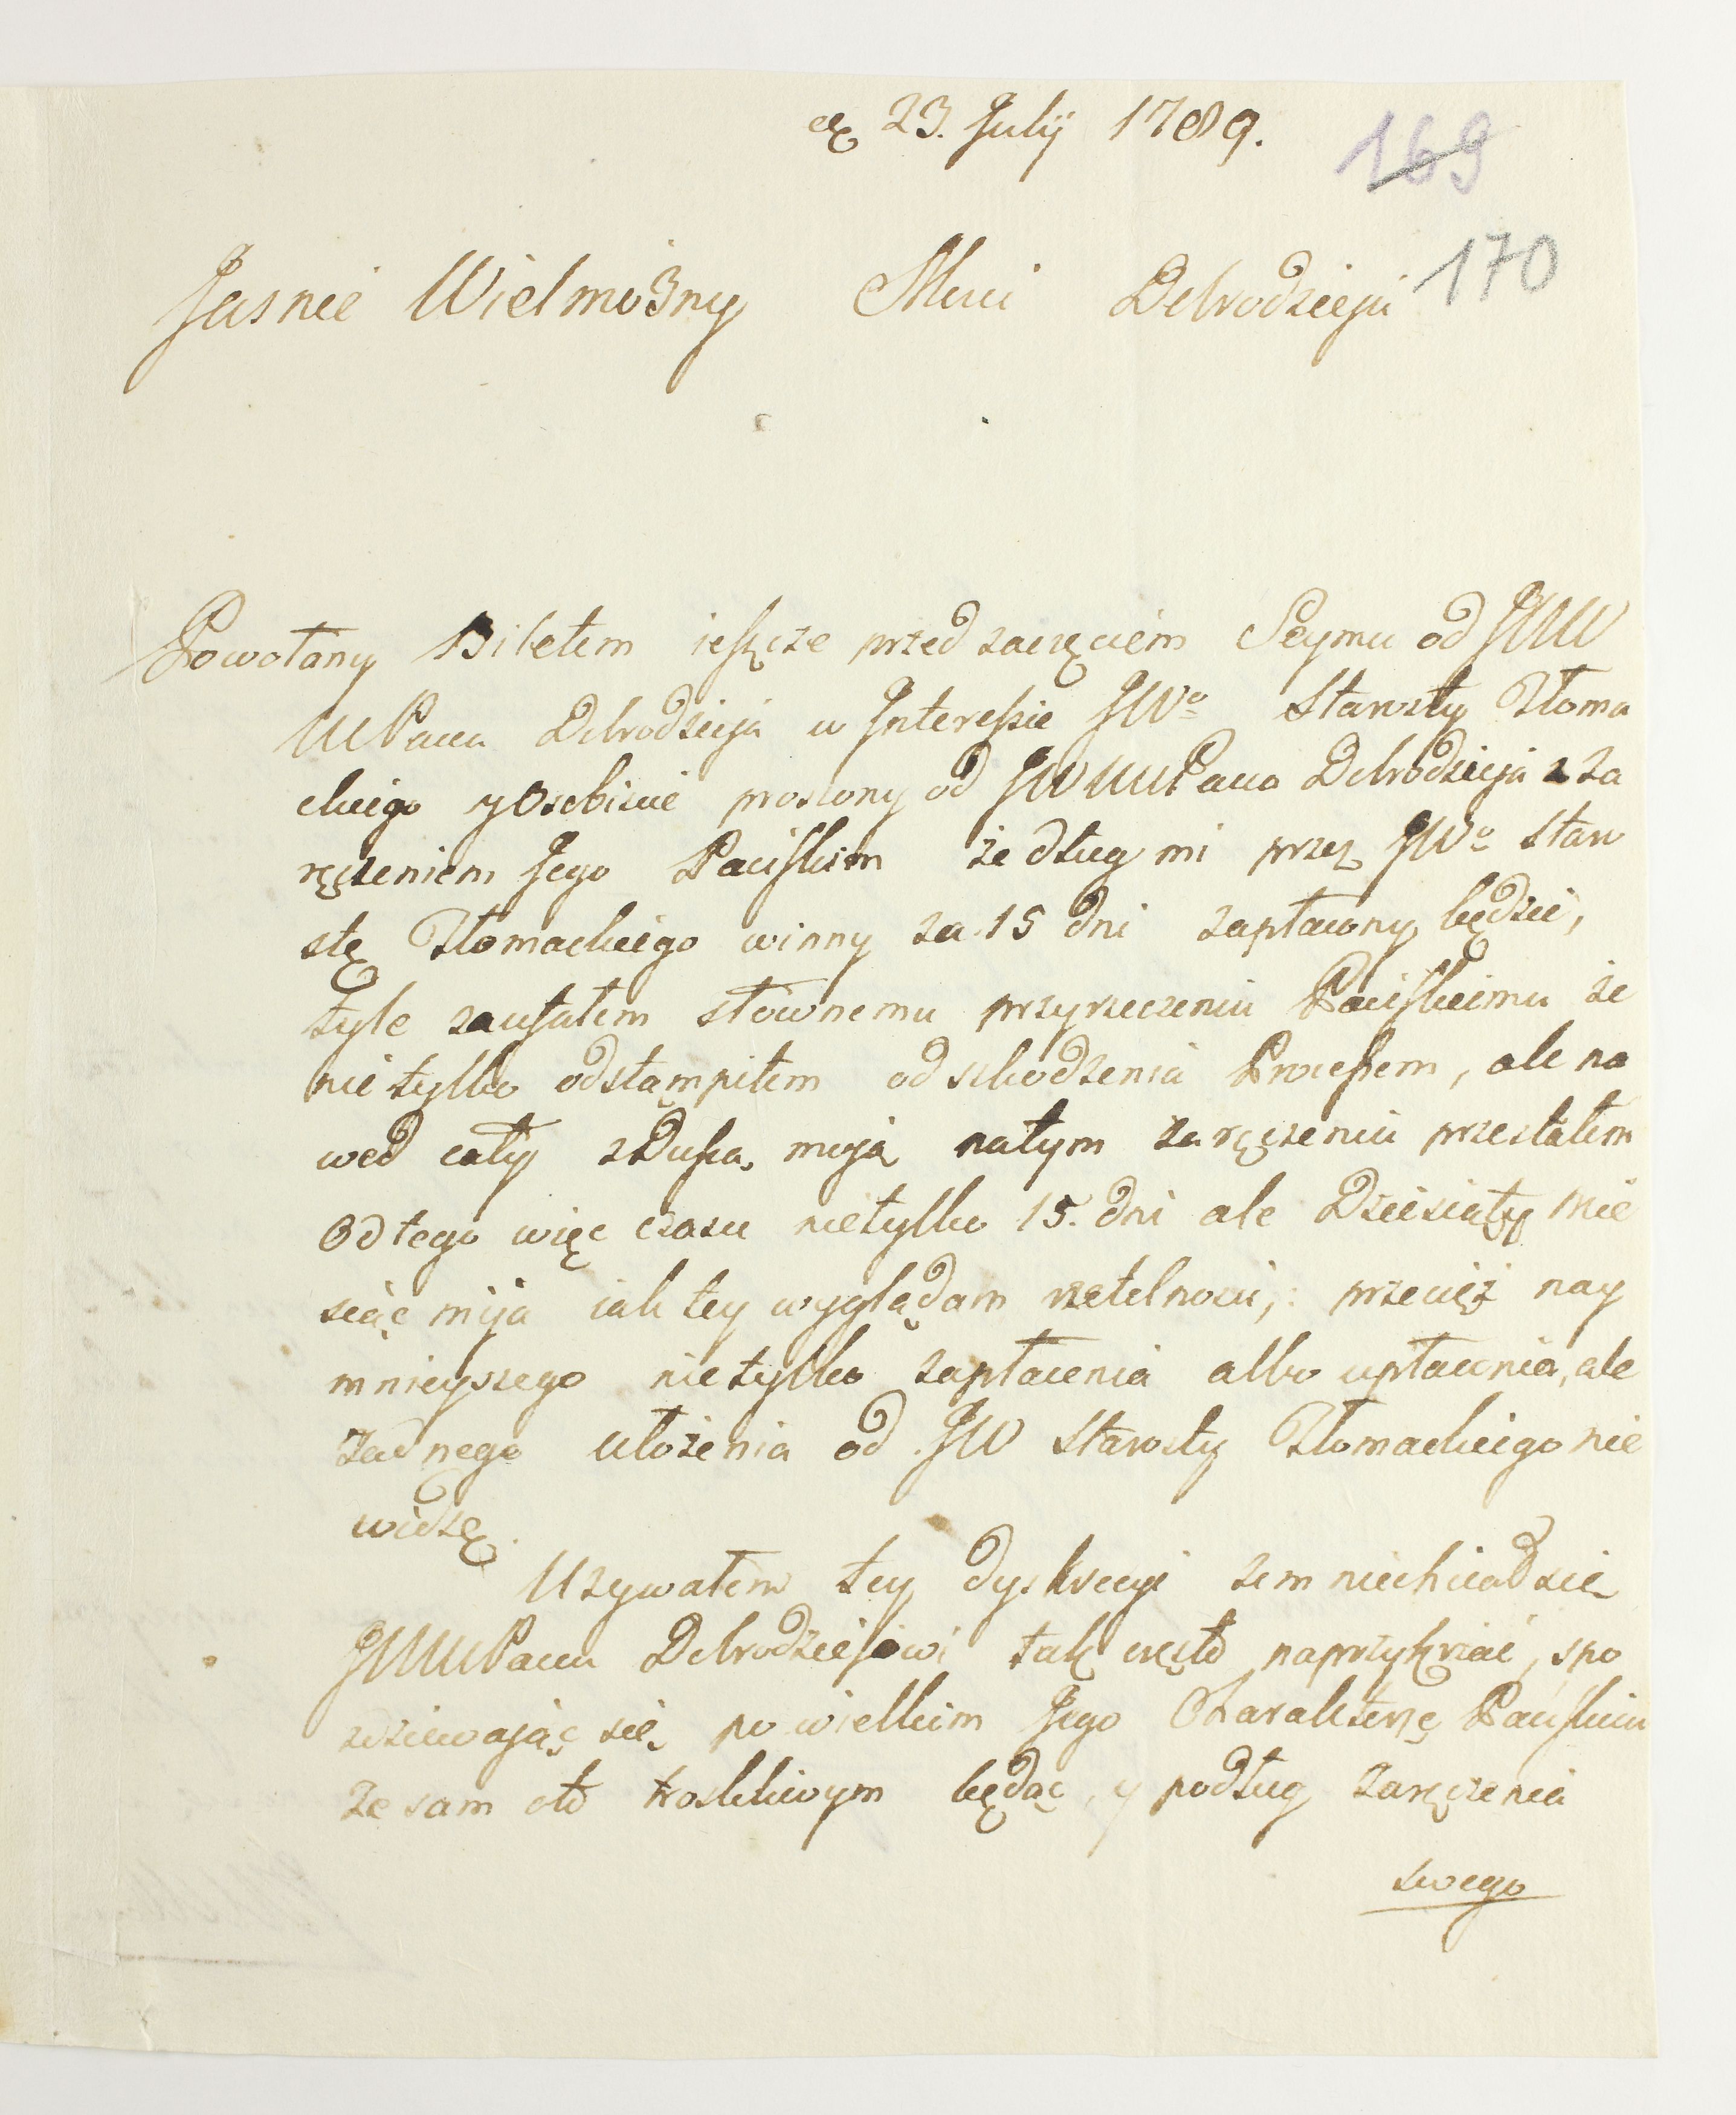 d 23. July 1789.
169
170
Jasnie Wielmożny Mści Dobrodzieju
Powołany Biletem ieszcze przed zaczęciem Seymu od JWW
MPana Dobrodzieja w Interessie JWo Starosty Tłoma
ckiego y Osobiscie proszony od JWWMPana Dobrodzieja z za
ręczeniem Jego Pańskim że dług mi przez JWo Staro
stę Tłomackiego winny za 15 dni zapłacony będzie,
tyle zaufałem słownemu przyrzeczeniu Pańskiemu że
nie tylko odstąmpiłem od schodzenia Processem, ale na
wed cały z Duszą moją na tym zaręczeniu przestałem
Od tego więc czasu nietylko 15. dni ale Dziesiąty Mie
siąc mija iak tey wyglądam rzetelnosci, przecięż nay
mnieyszego nie tylko zapłacenia albo upłacenia, ale
żadnego ułożenia od JW Starosty Tłomackiego nie
widzę.
Uzywałem tey dyskrecyi zem niechciał się
JWWMPanu Dobrodziejowi tak często naprzykrzać, spo
dziewając się po wielkim Jego Charakterze Pańskim
że sam oto troskliwym będąc, y podług zaręczenia
swego